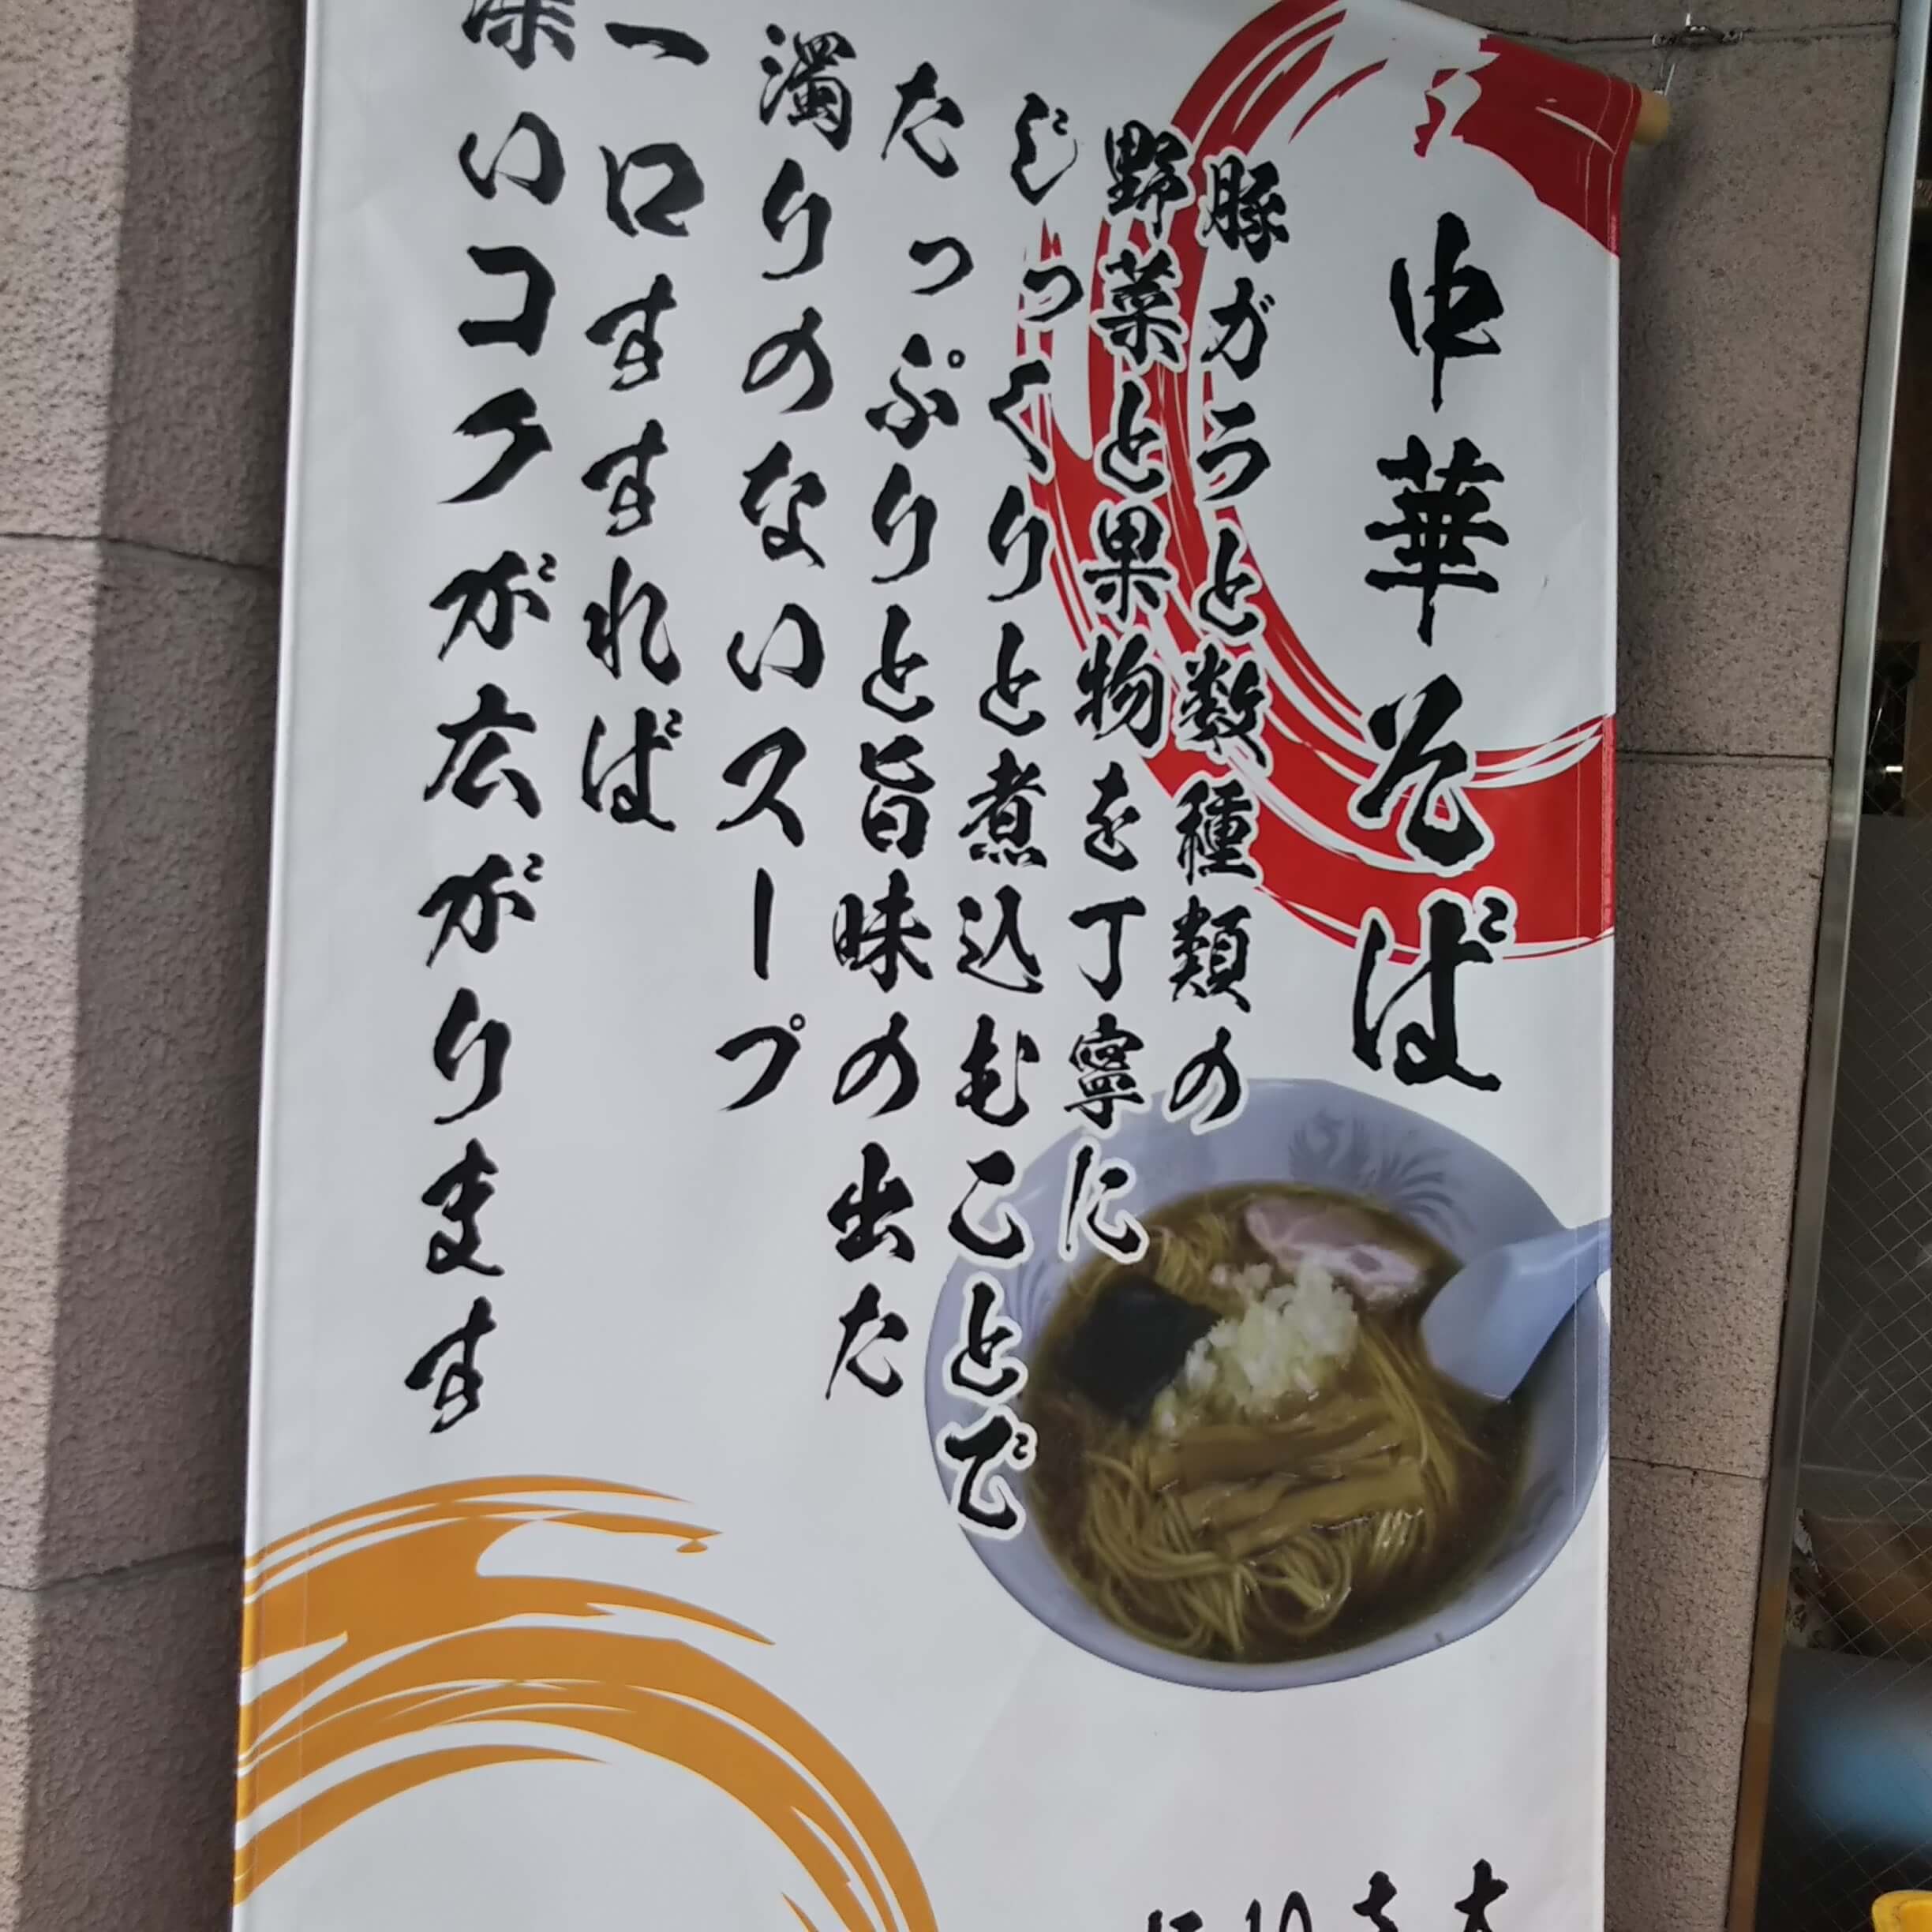 中華そば
豚ガラと数種類の
野菜と果物を丁寧に
じっくりと煮込むことで
たっぷりと旨味の出た
濁りのないスープ
一口すすれば
深いコクが広がります